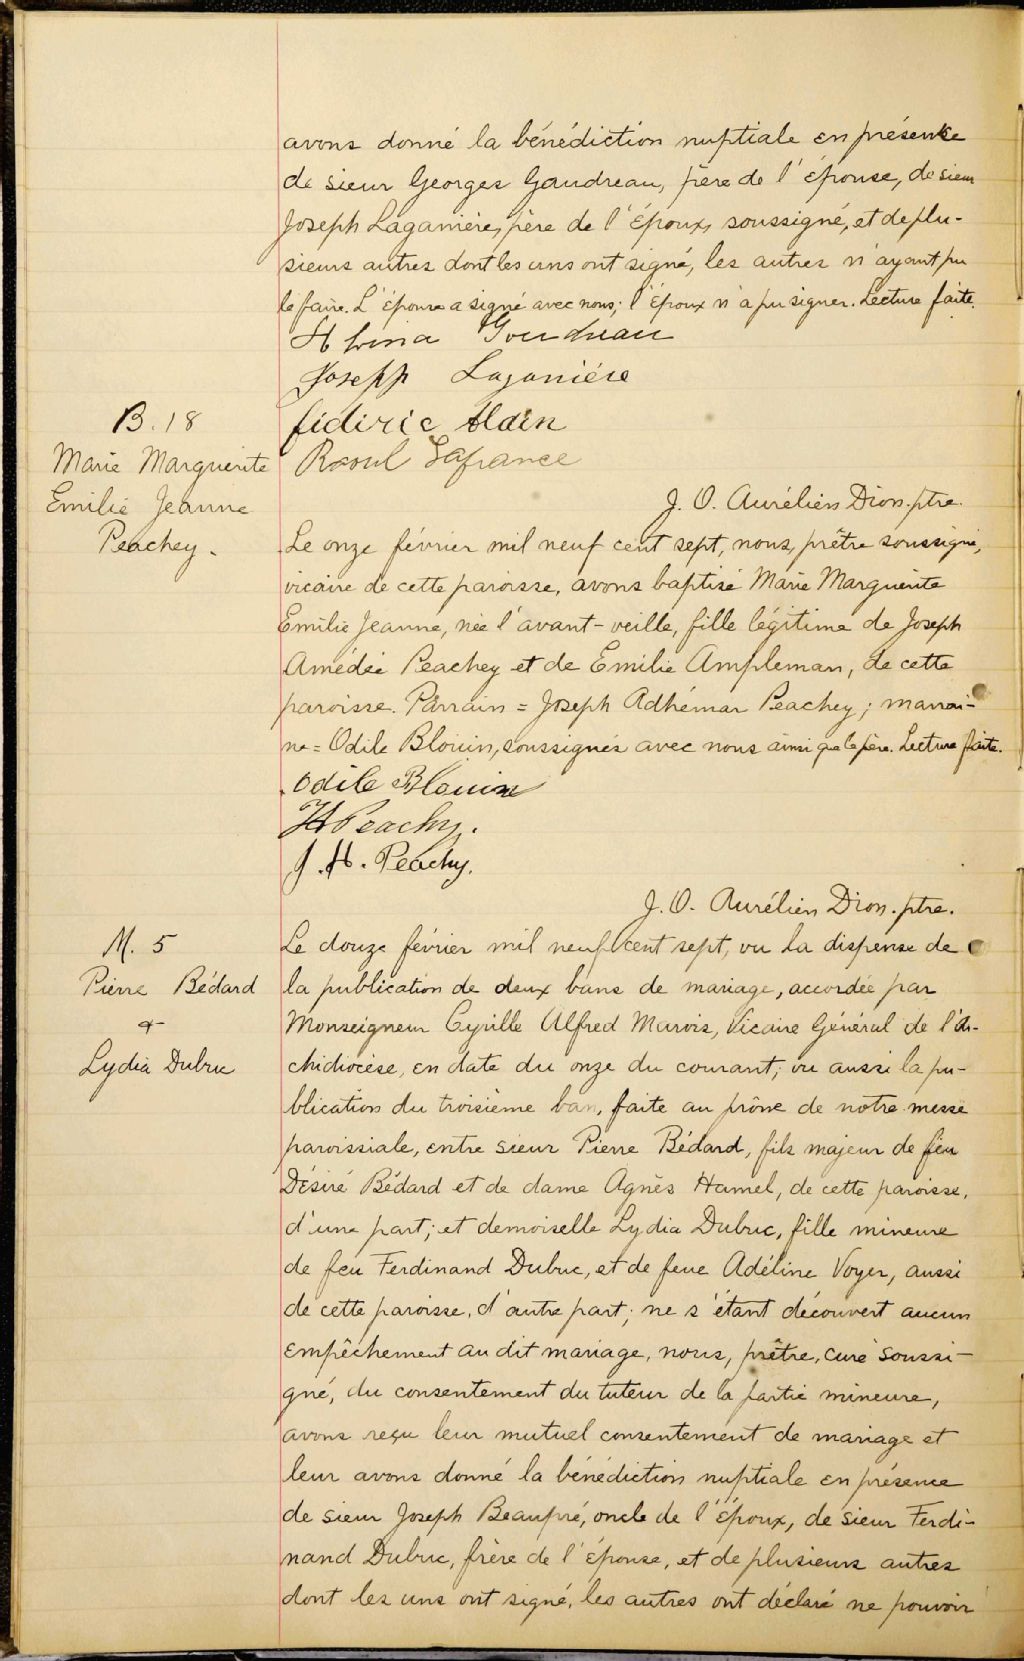 avons donné la bénédiction nuptiale en présence
de sieur Georges Gaudreau, père de l'épouse, de sieur
Joseph Laganière, père de l'époux, soussigné, et de plu-
sieurs autres dont les uns ont signé, les autres n'ayant pu
le faire. L'épouse a signé avec nous; l'époux n'a pu signer. Lecture faite.
Goudreau
Joseph Laganière
B. 18
Alain
Marie Marguerite
Raoul Lafrance
Emilie Jeanne
J. O. Aurélien Dion. ptre.
Peachey.
Le onze février mil neuf cent sept, nous, prêtre soussigné,
vicaire de cette paroisse, avons baptisé Marie Marguerite
Emilie Jeanne, née l'avant-veille, fille légitime de Joseph
Amédée Peachey et de Emilie Ampleman, de cette
paroisse. Parrain = Joseph Adhémar Peachey; marrai-
ne = Odile Blouin, soussignés avec nous ainsi que le père. Lecture faite.
Odile Blouin
Peachy.
J. H. Peachy.
J. O. Aurélien Dion. ptre.
M. 5
Le douze février mil neuf cent sept, vu la dispense de
Pierre Bédard
la publication de deux bans de mariage, accordée par
&
Monseigneur Cyrille Alfred Marois, Vicaire Général de l'Ar-
Lydia Dubuc
chidiocèse, en date du onze du courant; vu aussi la pu-
blication du troisième ban, faite au prône de notre messe
paroissiale, entre sieur Pierre Bédard, fils majeur de feu
Désiré Bédard et de dame Agnès Hamel, de cette paroisse,
d'une part; et demoiselle Lydia Dubuc, fille mineure
de feu Ferdinand Dubuc, et de feue Adéline Voyer, aussi
de cette paroisse, d'autre part; ne s'étant découvert aucun
empêchement au dit mariage, nous, prêtre, curé soussi-
gné, du consentement du tuteur de la partie mineure,
avons reçu leur mutuel consentement de mariage et
leur avons donné la bénédiction nuptiale en présence
de sieur Joseph Beaupré, oncle de l'époux, de sieur Ferdi-
nand Dubuc, frère de l'épouse, et de plusieurs autres
dont les uns ont signé, les autres ont déclaré ne pouvoir